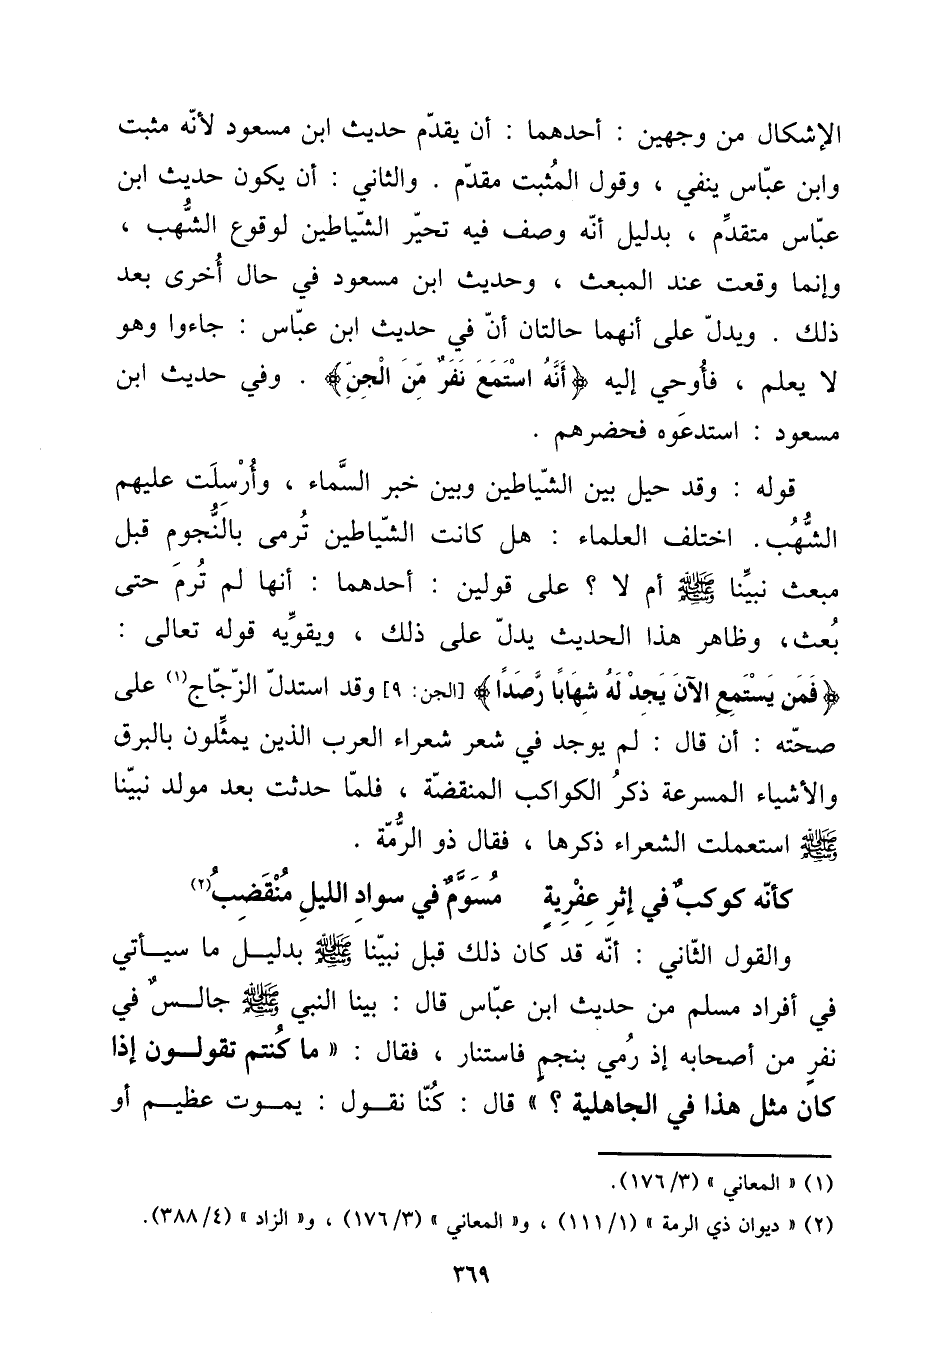 الإشكال من وجهين : أحدهما : أن يقدّم حديث ابن مسعود لأنّه مثبت
وابن عبّاس ينفي ، وقول المُثبت مقدّم . والثاني : أن يكون حديث ابن
عبّاس متقدِّم ، بدليل أنّه وصف فيه تحيّر الشّياطين لوقوع الشُّهب ،
وإنما وقعت عند المبعث ، وحديث ابن مسعود في حال أُخرى بعد
ذلك . ويدلّ على أنهما حالتان أنّ في حديث ابن عبّاس : جاءوا وهو
لا يعلم ، فأُوحي إليه ﴿أَنَّهُ اسْتَمَعَ نَفَرٌ مِّنَ الْجِنِّ﴾ . وفي حديث ابن
مسعود : استدعَوه فحضرهم .
قوله : وقد حيل بين الشّياطين وبين خبر السَّماء ، وأُرْسِلَت عليهم
الشُّهُب. اختلف العلماء : هل كانت الشّياطين تُرمى بالنُّجوم قبل
مبعث نبيِّنا ﷺ أم لا ؟ على قولين : أحدهما : أنها لم تُرمَ حتى
بُعث، وظاهر هذا الحديث يدلّ على ذلك ، ويقوِّيه قوله تعالى :
﴿فَمَن يَسْتَمِعِ الآنَ يَجِدْ لَهُ شِهَابًا رَّصَدًا﴾ [الجن: ٩] وقد استدلّ الزّجّاج(١) على
صحّته : أن قال : لم يوجد في شعر شعراء العرب الذين يمثِّلون بالبرق
والأشياء المسرعة ذكرُ الكواكب المنقضّة ، فلمّا حدثت بعد مولد نبيّنا
ﷺ استعملت الشعراء ذكرها ، فقال ذو الرُّمّة .
كأنّه كوكبٌ في إثرِ عِفْرِيةٍ مُسَوَّمٌ في سوادِ الليلِ مُنْقَضِبُ(٢)
والقول الثّاني : أنّه قد كان ذلك قبل نبيّنا ﷺ بدليل ما سيأتي
في أفراد مسلم من حديث ابن عبّاس قال : بينا النبي ﷺ جالسٌ في
نفرٍ من أصحابه إذ رُمي بنجمٍ فاستنار ، فقال : « ما كُنتم تقولون إذا
كان مثل هذا في الجاهلية ؟ » قال : كُنّا نقول : يموت عظيم أو
(١) « المعاني » (٣/ ١٧٦).
(٢) « ديوان ذي الرمة » (١/ ١١١) ، و« المعاني » (٣/ ١٧٦) ، و« الزاد » (٤/ ٣٨٨).
٣٦٩